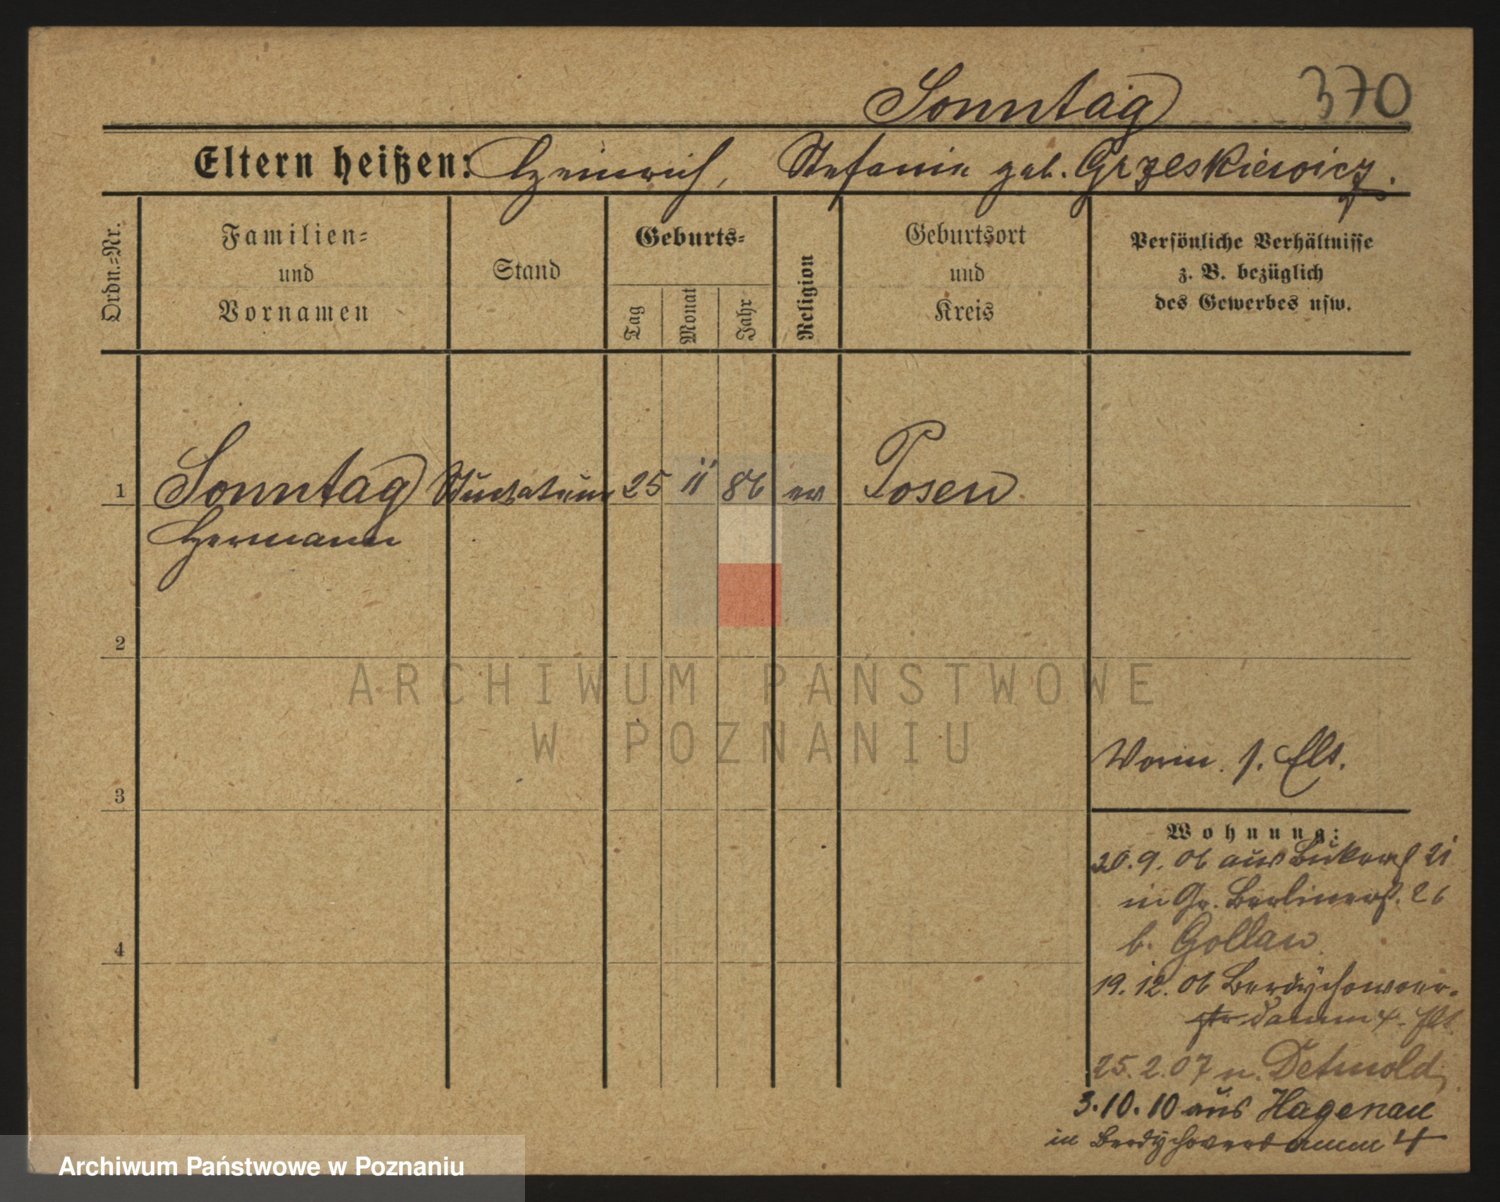 Sonntag 370
Eltern heißen: Heinrich, Stefanie geb. Grzeskiewicz.
Ordn.-Nr.
Familien- und Vornamen
Stand
Geburts-
Tag
Monat
Jahr
Religion
Geburtsort und Kreis
Persönliche Verhältnisse
z. B. bezüglich
des Gewerbes usw.
1 Sonntag 25 11 86 ev Posen
Hermann
2
ARCHIWUM PAŃSTWOWE
W POZNANIU
Vorm. s. Elt.
3
Wohnung:
20.9.06 aus Bukerst 21
in Gr. Berlinerst. 26
b. Gollan
4
19.12.06 Berdychower-
str damm 4. Elt.
25.2.07 n. Detmold
3.10.10 aus Hagenau
in Berdychowerdamm 4
Archiwum Państwowe w Poznaniu